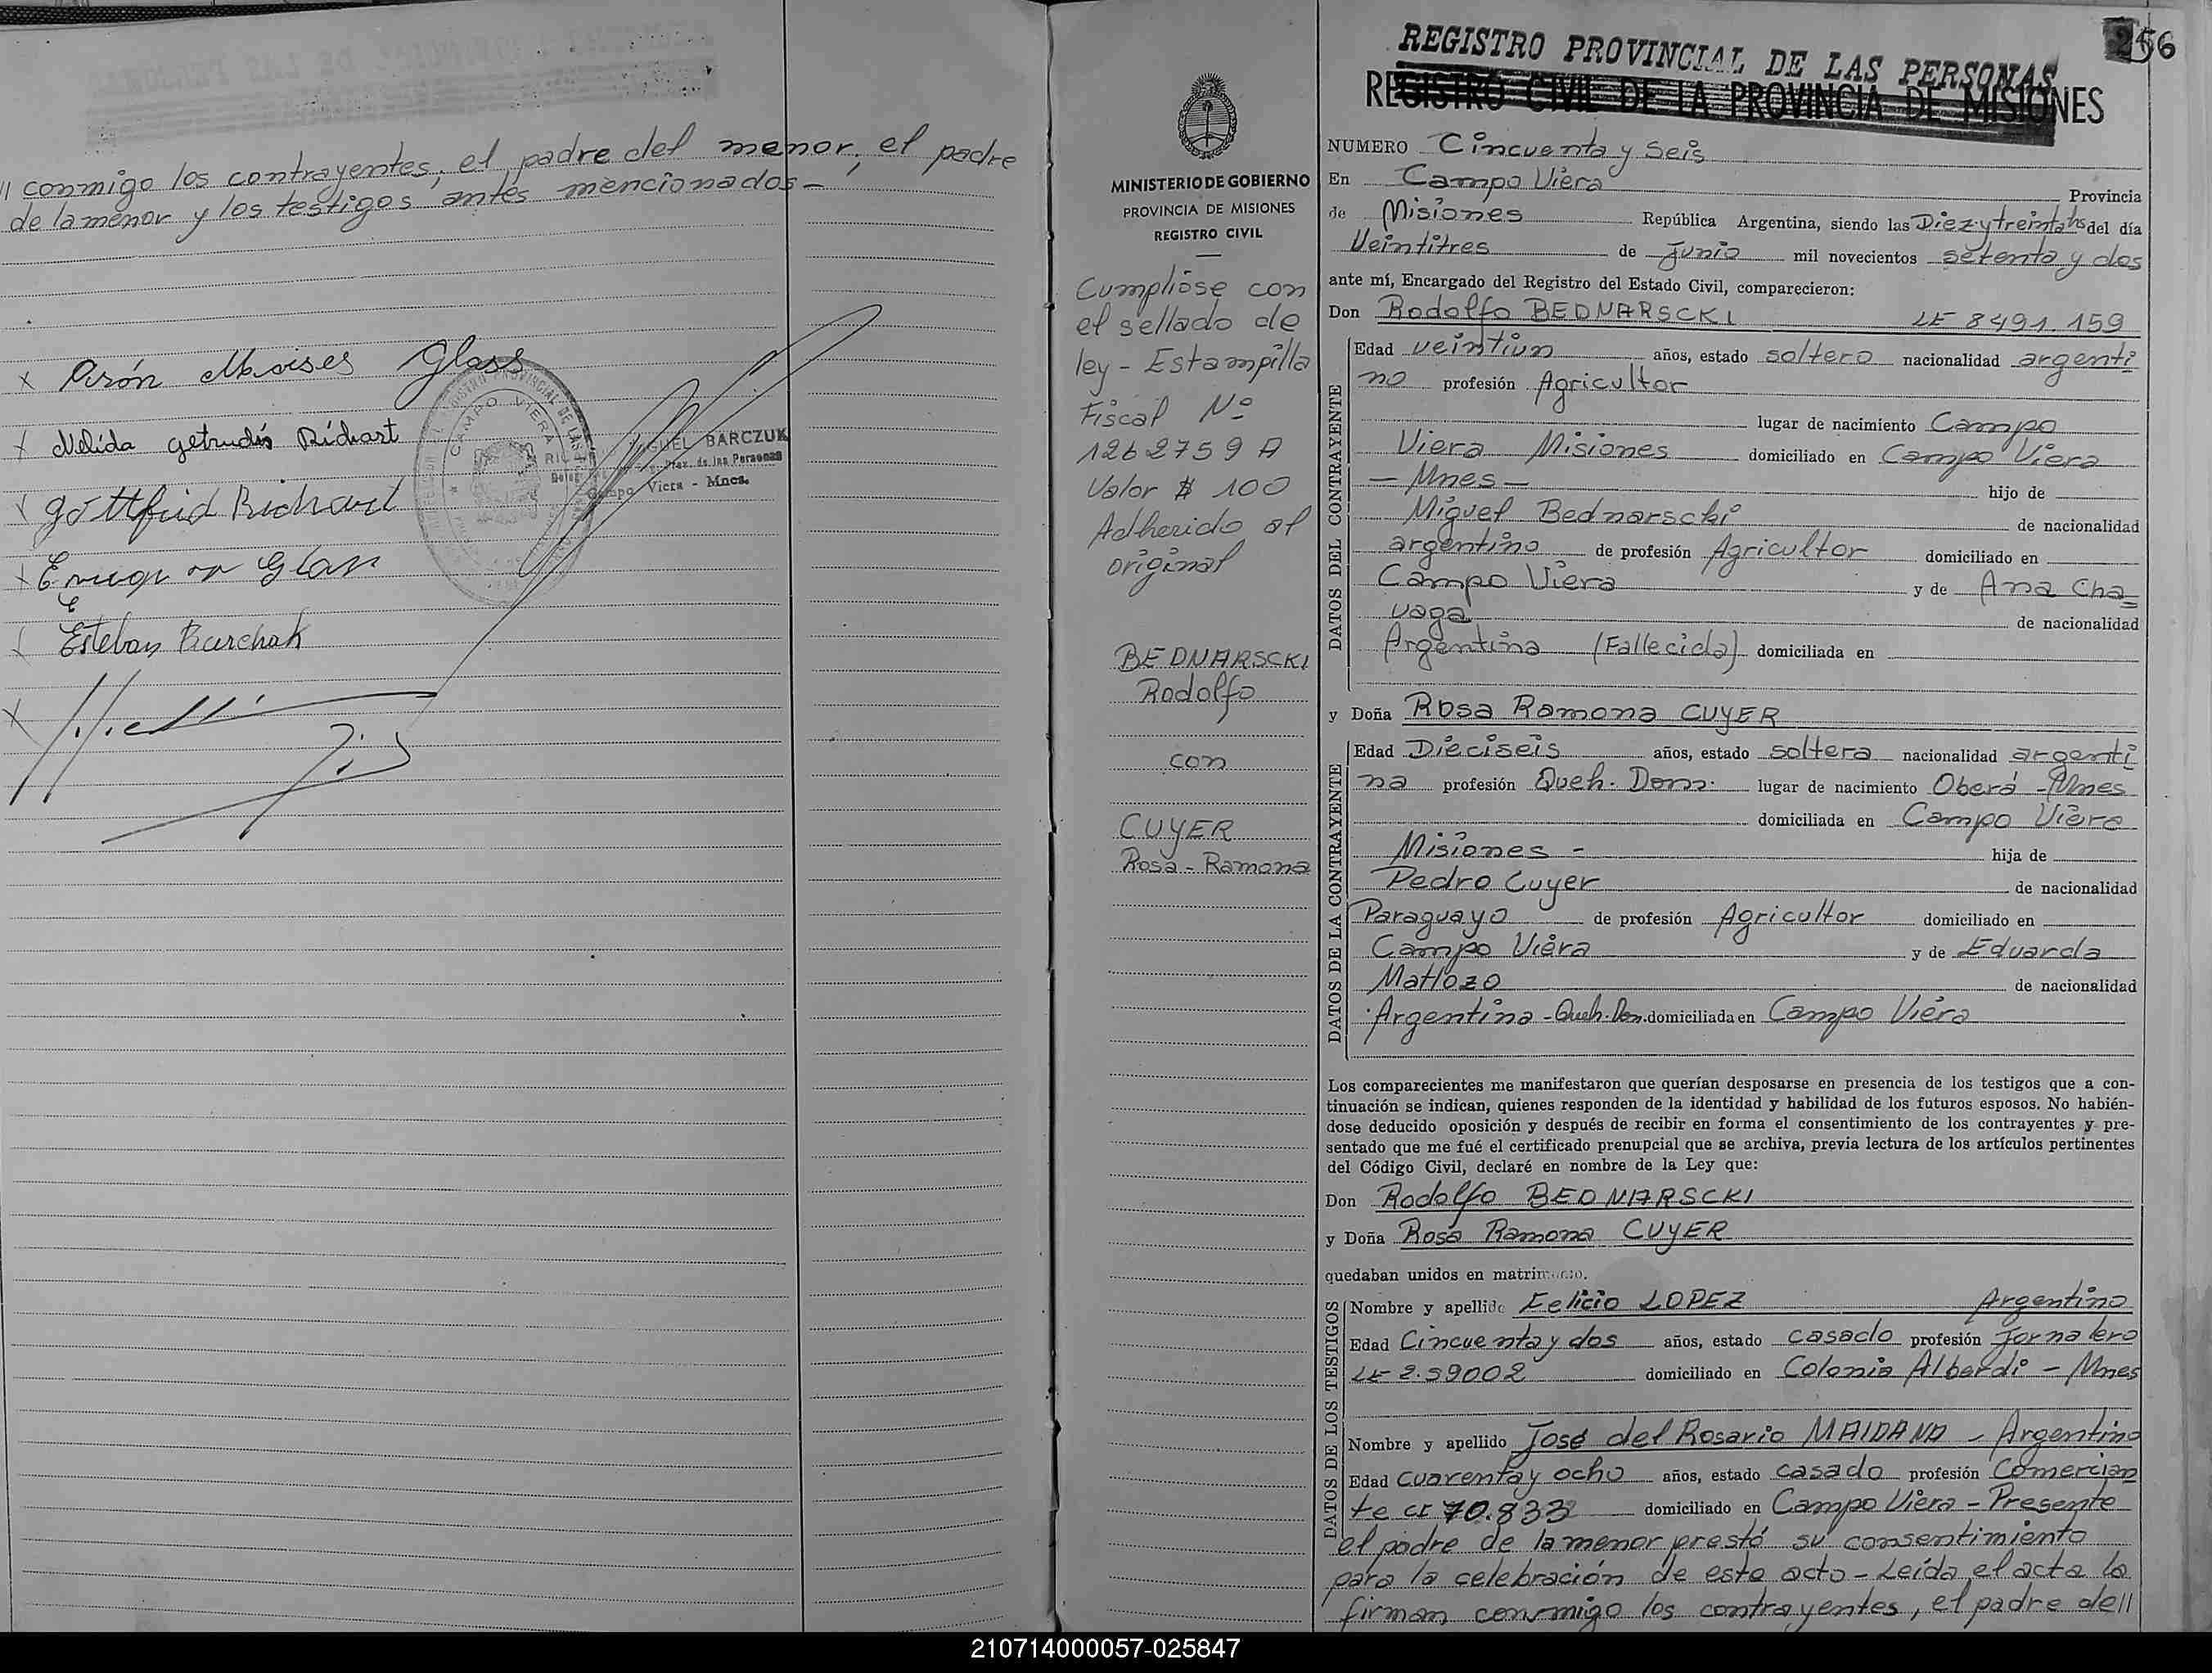 // conmigo los contrayentes, el padre del menor, el padre
de la menor y los testigos antes mencionados-
x Arón Moises Glass
x Nelida getrudis Richart
x Gottfrid Richart
x Glass
x Esteban Barchak
x
REGISTRO PROVINCIAL DE LAS PERSONAS
CAMPO VIERA
MIGUEL BARCZUK
de las Personas
Campo Viera - Mnes.
256
MINISTERIO DE GOBIERNO
PROVINCIA DE MISIONES
REGISTRO CIVIL
Cumplióse con
el sellado de
ley - Estampilla
Fiscal Nº
1262759 A
Valor $ 100
Adherido al
original
BEDNARSCKI
Rodolfo
con
CUYER
Rosa - Ramona
REGISTRO PROVINCIAL DE LAS PERSONAS
REGISTRO CIVIL DE LA PROVINCIA DE MISIONES
NUMERO Cincuenta y Seis
En Campo Viera Provincia
de Misiones República Argentina, siendo las Diez y treinta hs del día
Veintitres de junio mil novecientos setenta y dos
ante mí, Encargado del Registro del Estado Civil, comparecieron:
Don Rodolfo BEDNARSCKI LE 8491.159
DATOS DEL CONTRAYENTE
Edad veintiun años, estado soltero nacionalidad argenti
no profesión Agricultor
lugar de nacimiento Campo
Viera Misiones domiciliado en Campo Viera
- Mnes - hijo de
Miguel Bednarscki de nacionalidad
argentino de profesión Agricultor domiciliado en
Campo Viera y de Ana Cha=
vaga de nacionalidad
Argentina (Fallecida) domiciliada en
y Doña Rosa Ramona CUYER
DATOS DE LA CONTRAYENTE
Edad Dieciseis años, estado soltera nacionalidad argenti
na profesión Queh. Dom. lugar de nacimiento Oberá - Mnes
domiciliada en Campo Viera
Misiones - hija de
Pedro Cuyer de nacionalidad
Paraguayo de profesión Agricultor domiciliado en
Campo Viera y de Eduarda
Mattozo de nacionalidad
Argentina - Queh. Dom. domiciliada en Campo Viera
Los comparecientes me manifestaron que querían desposarse en presencia de los testigos que a con-
tinuación se indican, quienes responden de la identidad y habilidad de los futuros esposos. No habién-
dose deducido oposición y después de recibir en forma el consentimiento de los contrayentes y pre-
sentado que me fué el certificado prenupcial que se archiva, previa lectura de los artículos pertinentes
del Código Civil, declaré en nombre de la Ley que:
Don Rodolfo BEDNARSCKI
y Doña Rosa Ramona CUYER
quedaban unidos en matrimonio.
DATOS DE LOS TESTIGOS
Nombre y apellido Felicio LOPEZ Argentino
Edad Cincuenta y dos años, estado casado profesión Jornalero
LE 2.59002 domiciliado en Colonia Alberdi - Mnes
Nombre y apellido José del Rosario MAIDANA - Argentino
Edad cuarenta y ocho años, estado casado profesión Comercian
te CI 70.833 domiciliado en Campo Viera - Presente
el padre de la menor prestó su consentimiento
para la celebración de este acto - Leída el acta la
firman conmigo los contrayentes, el padre del//
210714000057-025847